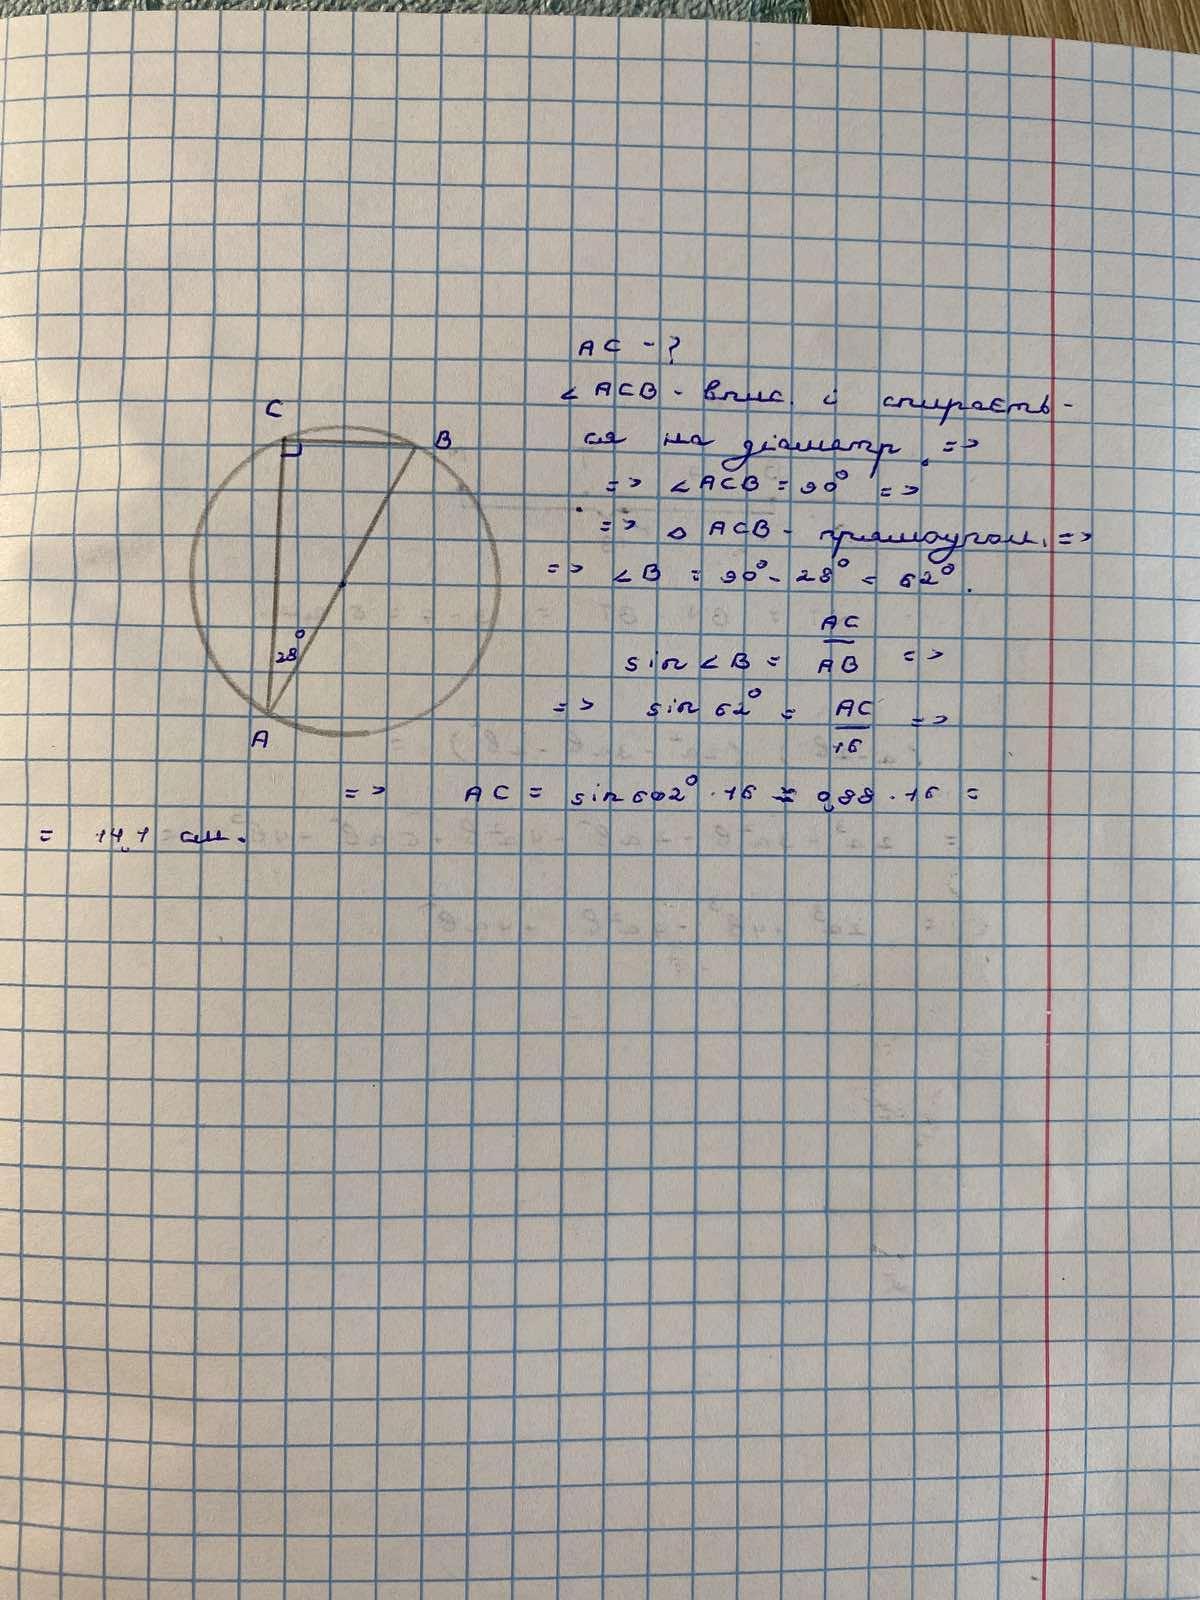 AC - ?
∠ACB - впис. і спираєть-
ся на діаметр =>
=> ∠ACB = 90° =>
=> △ ACB - прямоугол. =>
=> ∠B = 90° - 28° = 62°.
sin ∠B = AC/AB =>
=> sin 62° = AC/16 =>
=> AC = sin 62° · 16 ≈ 0,88 · 16 =
= 14,1 см.
C
B
28°
A